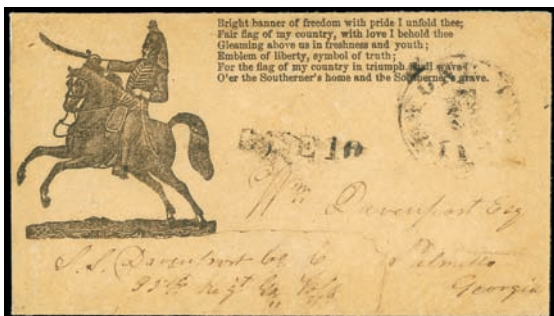 Bright banner of freedom with pride I unfold thee;
Fair flag of my country, with love I behold thee
Gleaming above us in freshness and youth;
Emblem of liberty, symbol of truth;
For the flag of my country in triumph shall wave
O'er the Southerner's home and the Southerner's grave.
DUE 10
Wm Davenport Esq
S. S. Davenport Co C Palmetto
35th Regt Ga Vols Georgia